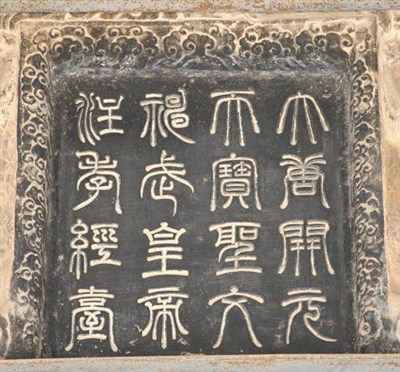 大唐開元
天寶聖文
神武皇帝
注孝經臺